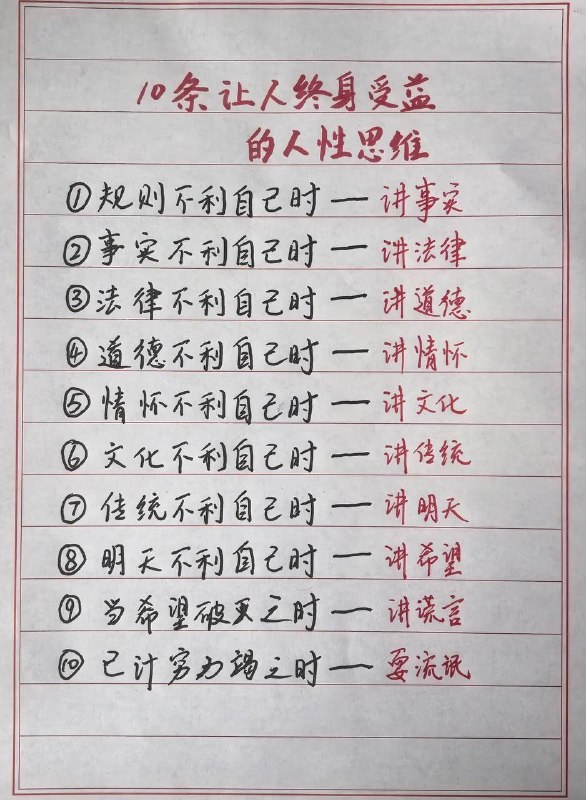 10条让人终身受益
的人性思维
①规则不利自己时一讲事实
②事实不利自己时一讲法律
③法律不利自己时一讲道德
④道德不利自己时一讲情怀
⑤情怀不利自己时一讲文化
⑥文化不利自己时一讲传统
⑦传统不利自己时一讲明天
⑧明天不利自己时一讲希望
⑨当希望破灭之时一讲谎言
⑩已计穷力竭之时一耍流氓